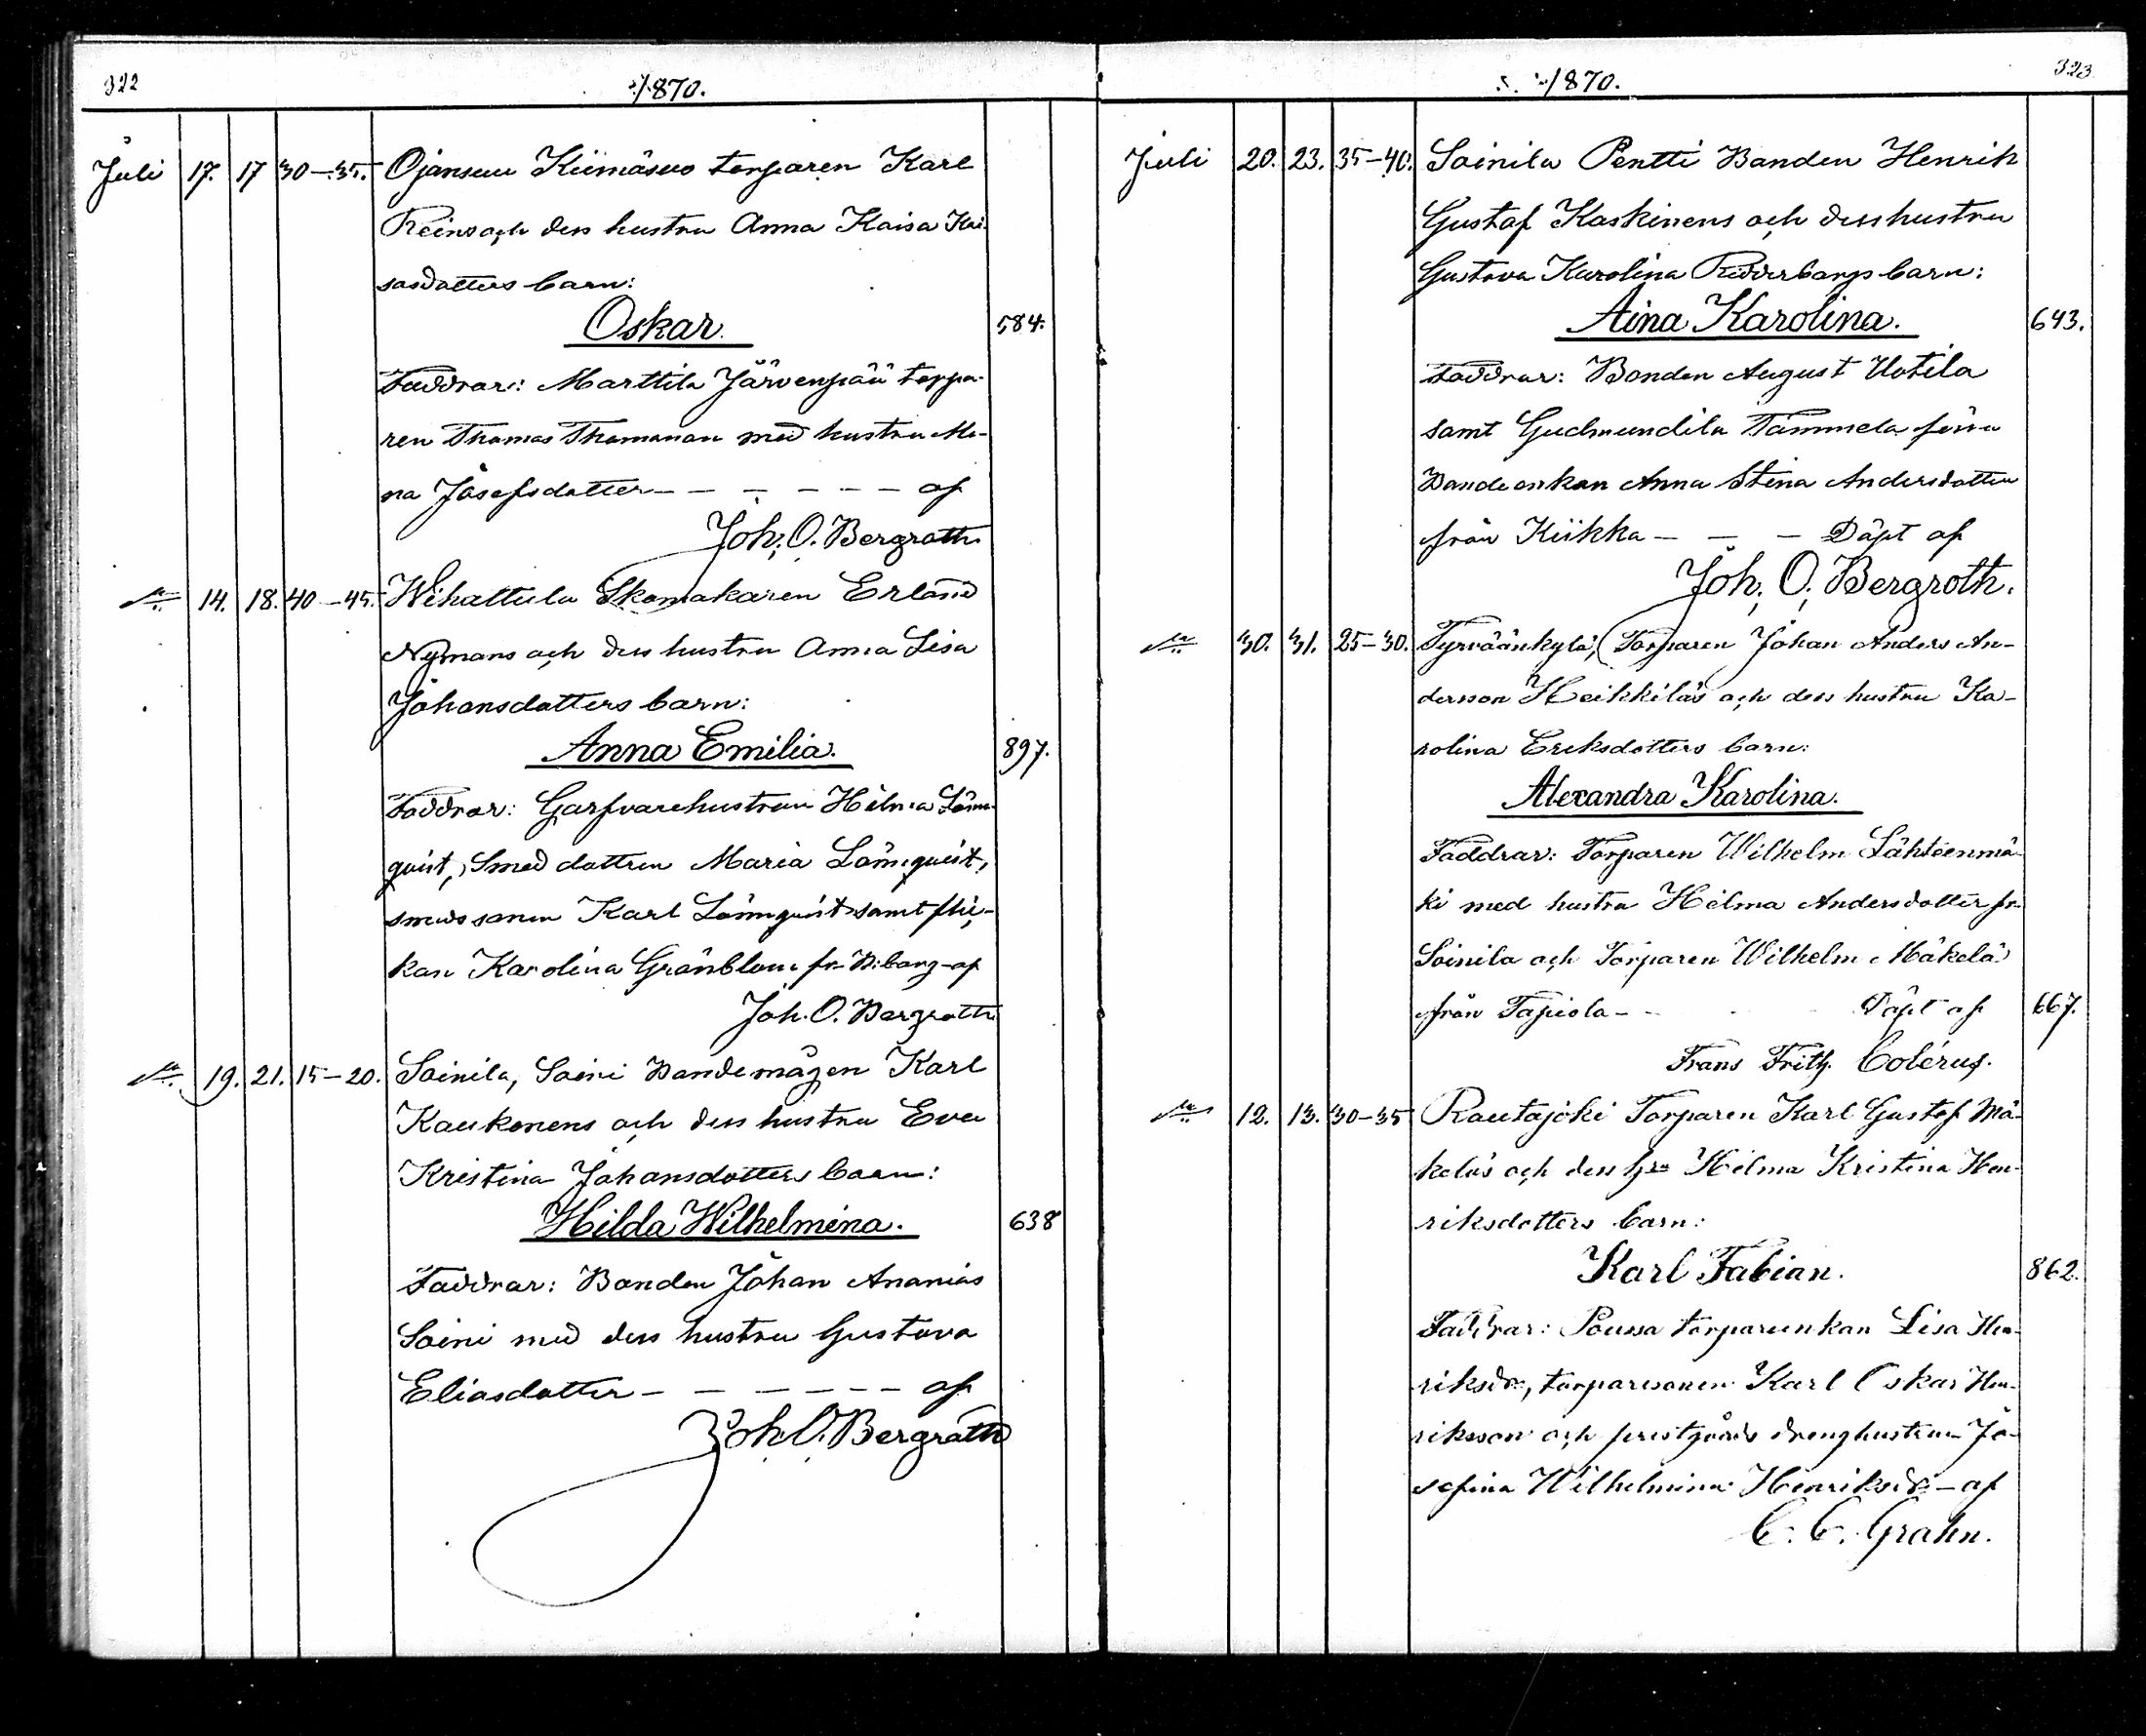 322
1870.
Juli 17. 17 30-35. Ojansuu Kiimäsuo torparen Karl
Reins och dess hustru Anna Kaisa Kai-
sasdotters barn:
Oskar. 584.
Faddrar: Marttila Järvenpää torpa-
ren Thomas Thomasson med hustru Mi-
na Josefsdotter - - - - - - af
Joh. O. Bergroth
14. 18. 40-45. Wihattula Skomakaren Erland
Nymans och dess hustru Anna Lisa
Johansdotters barn:
Anna Emilia. 897.
Faddrar: Garfvarehustrun Hilma Lönn-
quist, Smeddottren Maria Lönnquist,
smedssonen Karl Lönnquist samt flic-
kan Karolina Grönblom fr. B:borg - af
Joh. O. Bergroth
19. 21. 15-20. Soinila, Soini Bondemågen Karl
Kaukonens och dess hustru Eva
Kristina Johansdotters barn:
Hilda Wilhelmina. 638
Faddrar: Bonden Johan Ananias
Soini med dess hustru Gustava
Eliasdotter - - - - - - af
Joh. O. Bergroth
323
1870.
Juli 20. 23. 35-40. Soinila Pentti Bonden Henrik
Gustaf Kaskinens och dess hustru
Gustava Karolina Ridderborgs barn:
Aina Karolina. 643.
Faddrar: Bonden August Uotila
samt Gudmundila Tämmela förra
Bondeenkan Anna Stina Andersdotter
från Kiikka - - - Döpt af
Joh. O. Bergroth.
30. 31. 25-30. Tyrväänkylä, Torparen Johan Anders An-
dersson Heikkiläs och dess hustru Ka-
rolina Eriksdotters barn:
Alexandra Karolina.
Faddrar: Torparen Wilhelm Lähteenmä-
ki med hustru Hilma Andersdotter fr.
Soinila och Torparen Wilhelm Mäkelä
från Tapiola - Döpt af 667.
Frans Frith. Colérus.
12. 13. 30-35 Rautajoki Torparen Karl Gustaf Mä-
keläs och dess h:u Hilma Kristina Hen-
riksdotters barn:
Karl Fabian. 862.
Faddrar: Poussa torpareenkan Lisa Hen-
riksdr, torparesonen Karl Oskar Hen-
riksson och prestgårds drenghustrun Jo-
sefina Wilhelmina Henriksdr - af
C. C. Grahn.